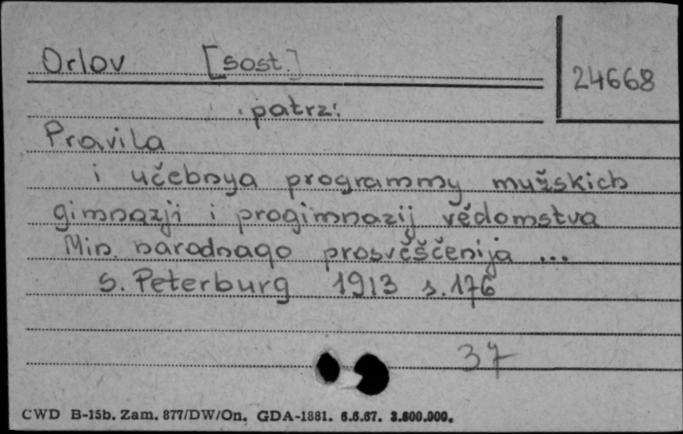 Orlov [sost.]
24668
patrz:
Pravila
i učebnya programmy mužskich
gimnazji i progimnazij vědomstva
Min. narodnago prosvěščenija ...
S. Peterburg 1913 s. 176
37
CWD B-15b. Zam. 877/DW/On. GDA-1881. 6.6.67. 3.800.000.